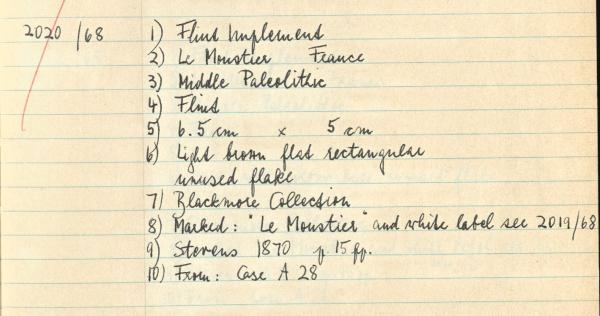 2020/68 1) Flint Implement
2) Le Moustier France
3) Middle Paleolithic
4) Flint
5) 6.5 cm x 5 cm
6) Light brown flat rectangular
unused flake
7) Blackmore Collection
8) Marked: "Le Moustier" and white label see 2019/68
9) Stevens 1870 p. 15 ff.
10) From: Case A 28